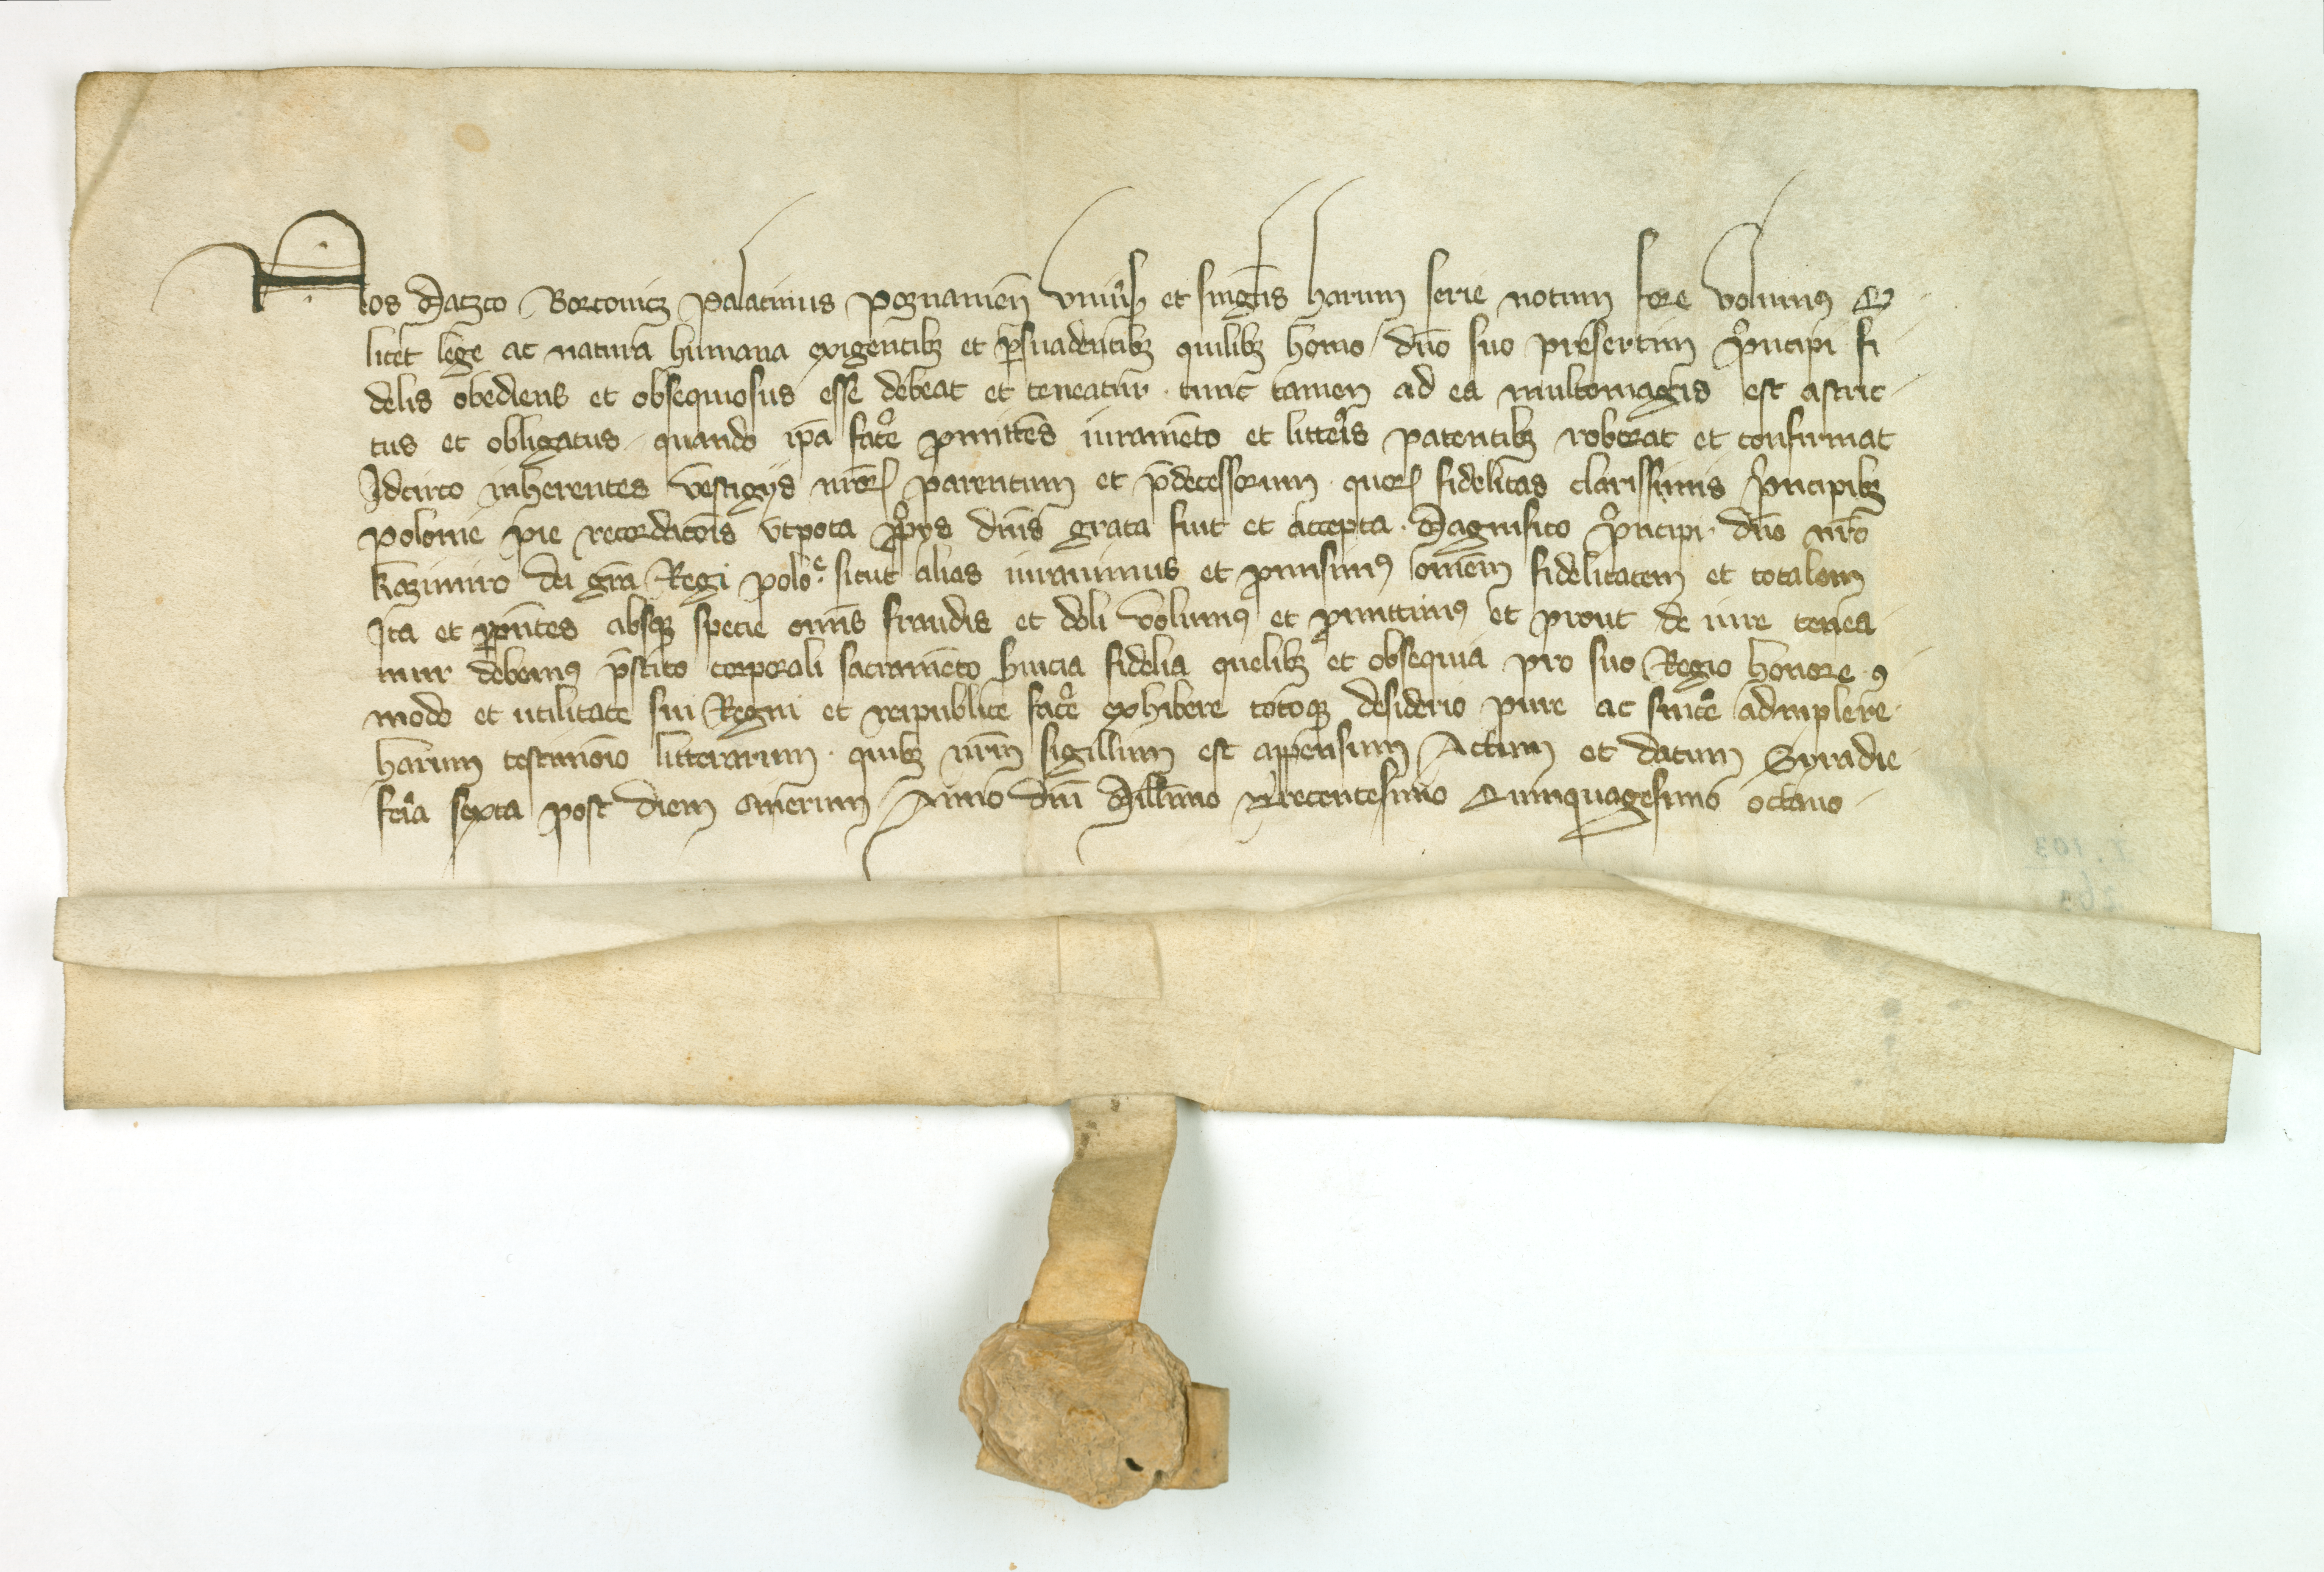 Nos Maczco Borconicz Palatinus poznanień vniũs et singlis harum serie notum fore volumꝰ Q
licet lege ac natura humana exigentibꝫ et ꝑsuadentibꝫ quilibꝫ homo dn̄o suo presertim pͥncipi fi
delis obediens et obsequiosus esse debeat et teneatur · tunc tamen ad ea multomagis est astric
tus et obligatus quando ip̄a facͤe ꝓmittēs iuramēto et littͥs patentibꝫ roborat et confirmat
Idcirco inherentes vestigijs nr̄oꝝ parentum et p̄decessorum quoꝝ fidelitas clarissimis pͥncipibꝫ
polonie pie recordacōis vtpota ꝓpͥys dn̄is grata fuit et accepta · Magnifico pͥncipi dn̄o nr̄o
kazimiro dei gr̄a Regi poloͤ · sicut alias iurauimus et ꝓmisimꝰ omēm fidelitatem et totalem
Ita et pn̄tes absqꝫ specie om̄is fraudis et doli volumꝰ et ꝓmittimꝰ et prout de iure tenea
mur debemꝰ p̄stito corporali sacramēto Suicia fidelia quelibꝫ et obsequia pro suo Regio honore ꝯ
modo et utilitate sui Regni et reipublice facͤe exhibere totoqꝫ desiderio pure ac sincͤe adinplere ·
harum testimōio litterarum · quibꝫ nr̄m sigillum est appensum Actum et datum Syradie
feͥia sexta post diem Cinerum Anno dn̄i Millīmo Trecentesimo Quinquagesimo octauo